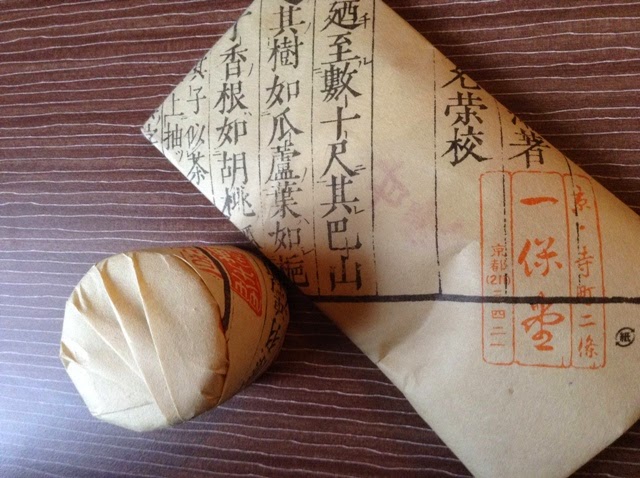 著
榮校
廼至數十尺其巴山
其樹如瓜蘆葉如梔
丁香根如胡桃瓜
其子似茶
上抽
京・寺町二條
一保堂
京都(211)三四二一
紙